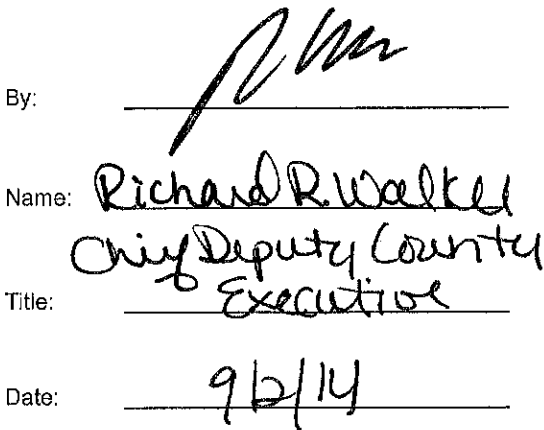 By:
Name: Richard R. Walker
Chief Deputy County
Title: Executive
Date: 9/2/14